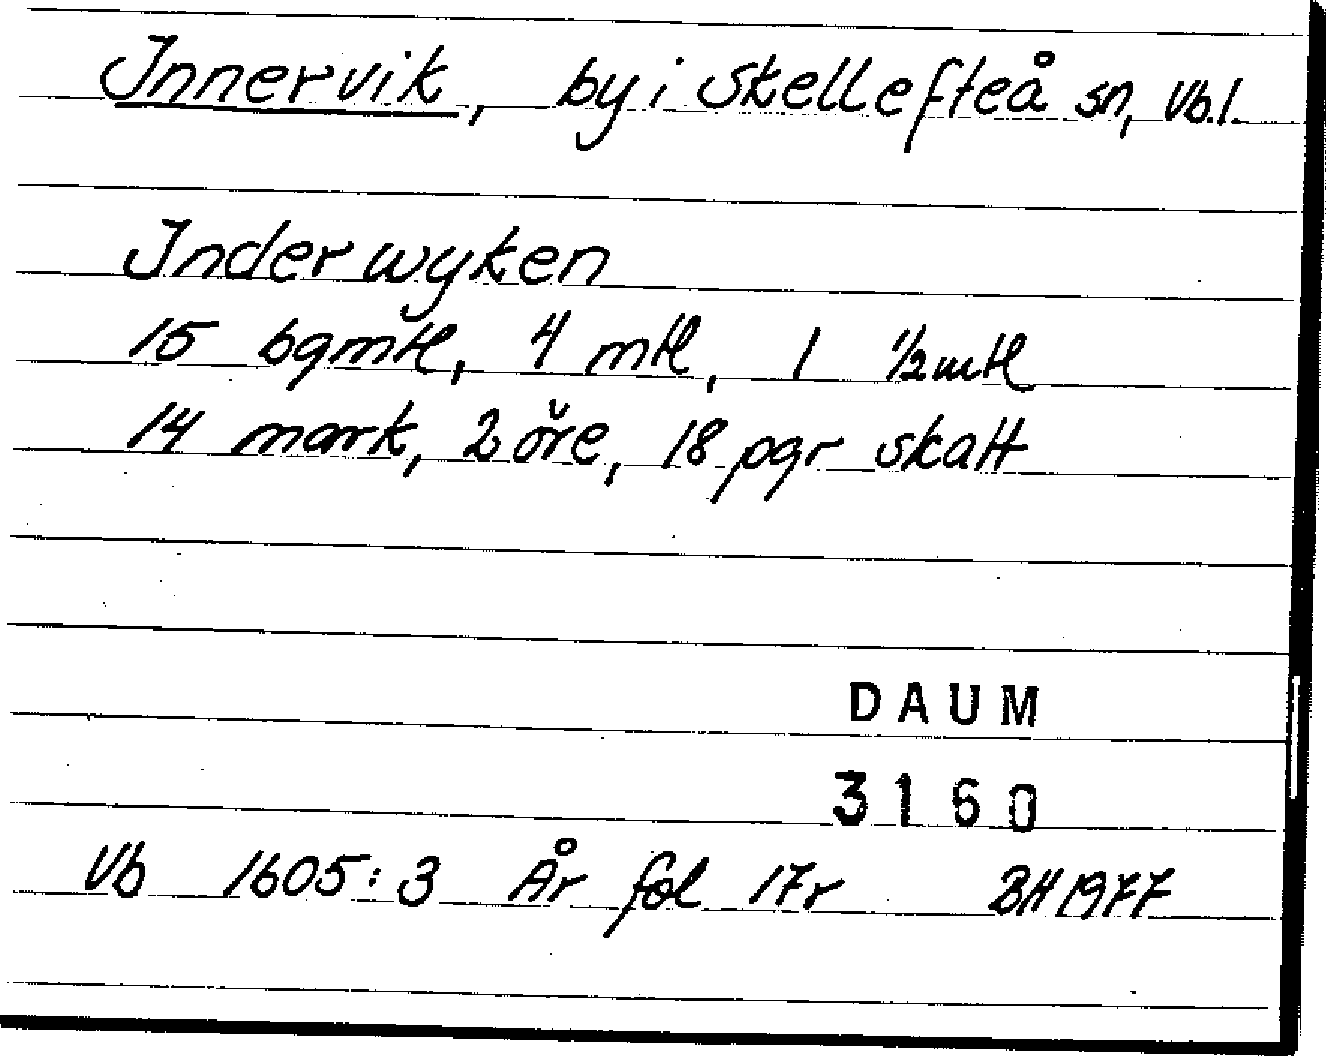 Innervik, by i Skellefteå sn, Vb.l.
Inderwyken
15 bgmtl, 4 mtl, 1 ½ mtl
14 mark, 2 öre, 18 pgr skatt
DAUM
3160
Vb 1605:3 År fol 17r BH 1977